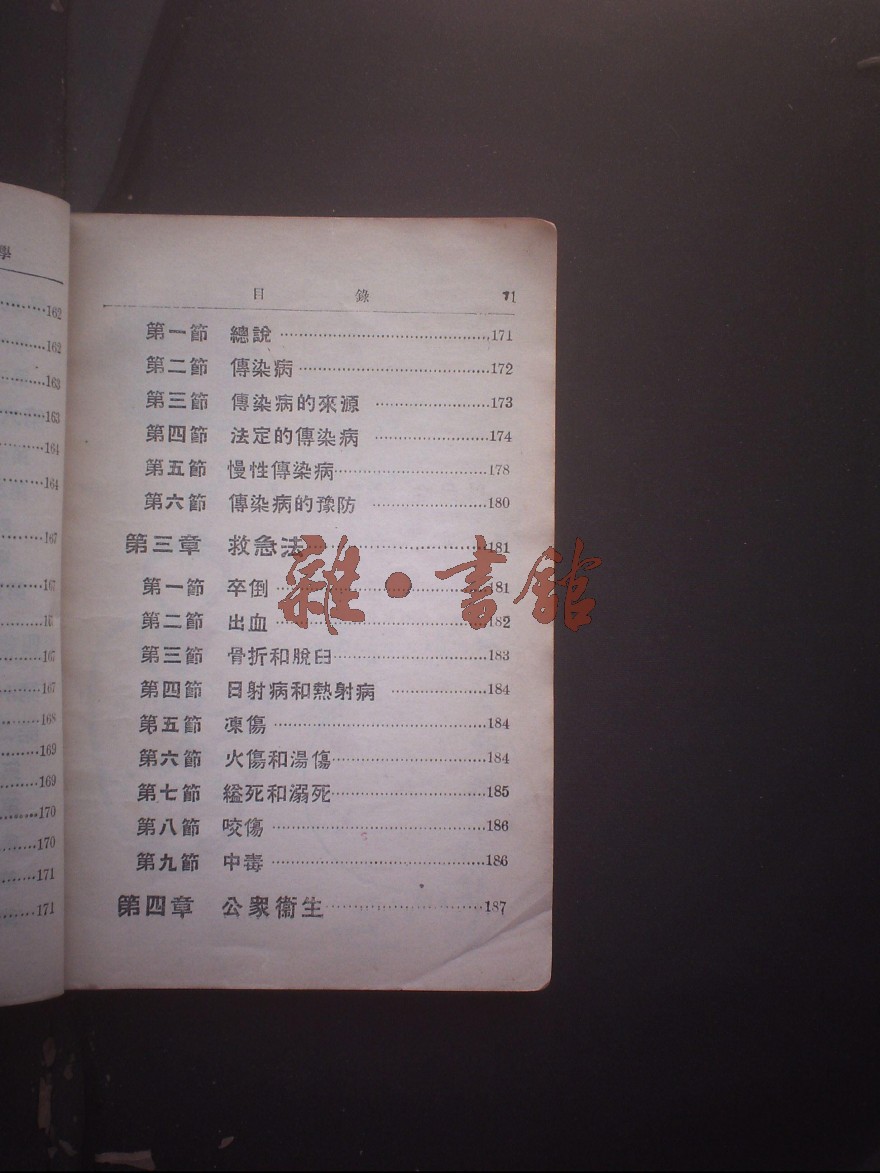 學
162
162
163
163
164
164
167
167
167
167
168
169
169
170
170
171
171
目錄 11
第一節 總說 171
第二節 傳染病 172
第三節 傳染病的來源 173
第四節 法定的傳染病 174
第五節 慢性傳染病 178
第六節 傳染病的豫防 180
第三章 救急法 181
第一節 卒倒 181
第二節 出血 182
第三節 骨折和脫臼 183
第四節 日射病和熱射病 184
第五節 凍傷 184
第六節 火傷和湯傷 184
第七節 縊死和溺死 185
第八節 咬傷 186
第九節 中毒 186
第四章 公衆衞生 187
雜·書館